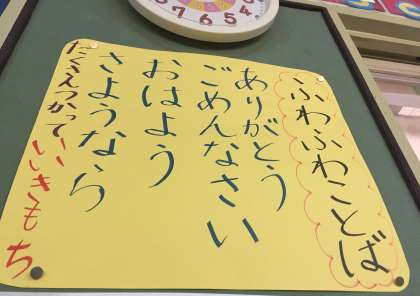 ふわふわことば
ありがとう
ごめんなさい
おはよう
さようなら
たくさんつかっていいきもち
7 6 5 4